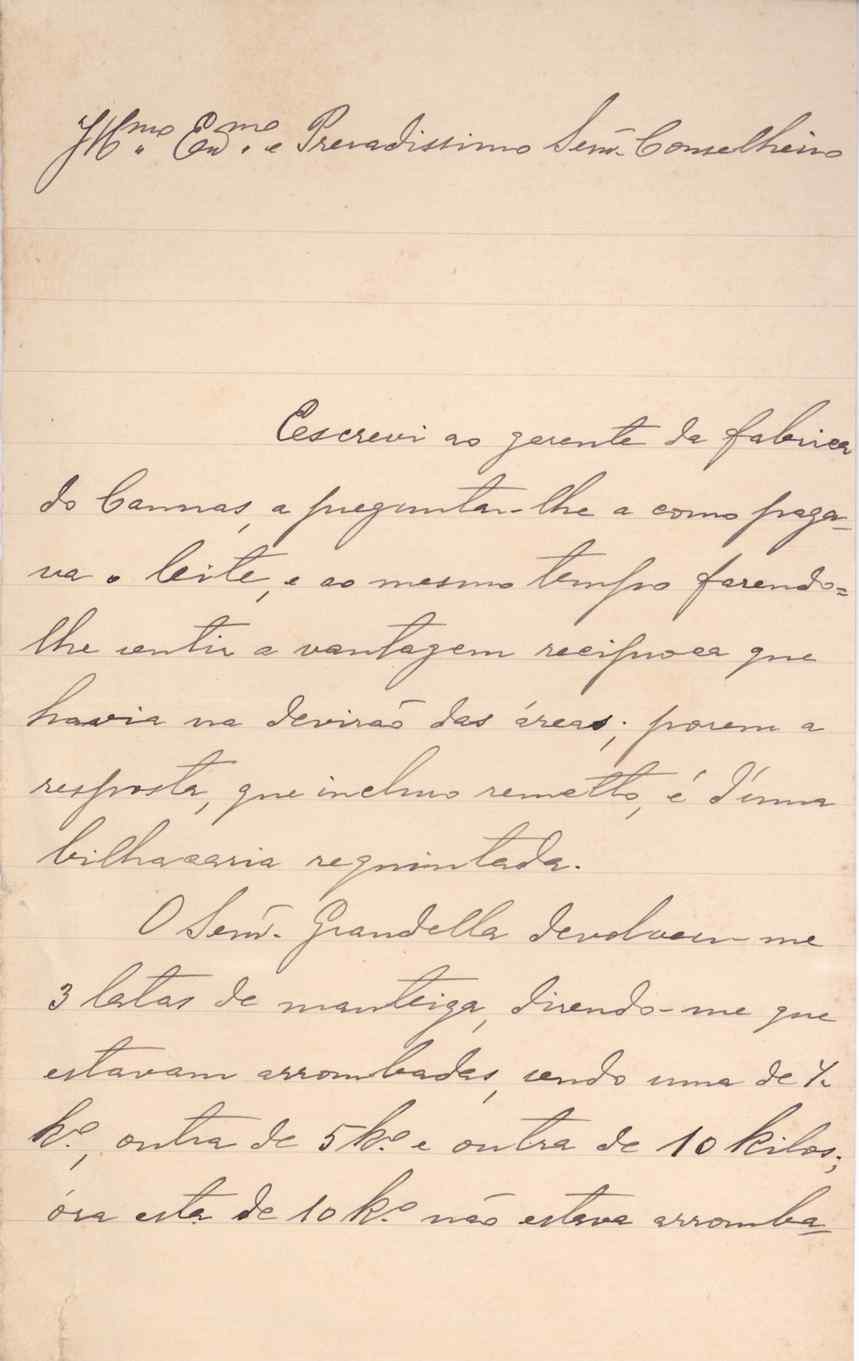 Illmo. Exmo. e Presadissimo Senr. Conselheiro
Escrevi ao gerente da fabrica
do Cannas, a preguntar-lhe a como paga-
va o leite, e ao mesmo tempo fazendo=
lhe sentir a vantagem reciproca que
havia na devizão das áreas; porem a
resposta, que incluso remetto, é d'uma
bilhacaria requintada.
O Senr. Grandella devolveu-me
3 latas de manteiga, dizendo-me que
estavam arrombadas, sendo uma de ½
kº, outra de 5 kº e outra de 10 kilos;
óra esta de 10 kº não estava arromba-